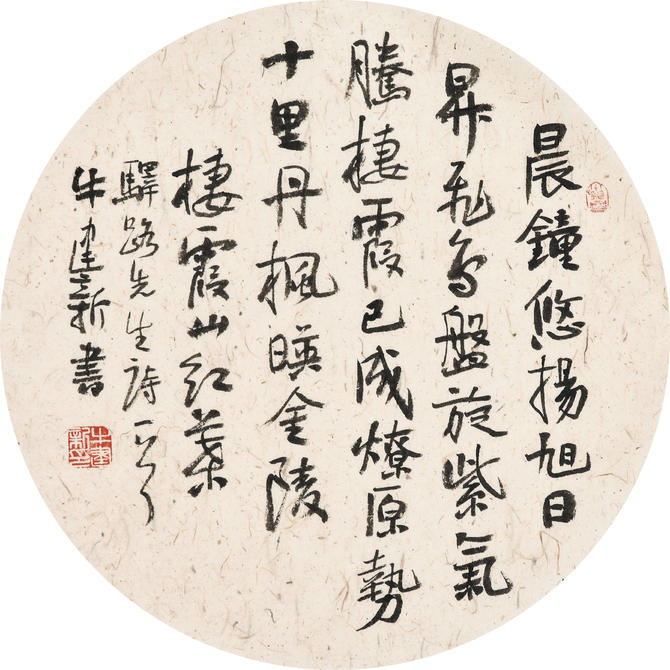 晨鐘悠揚旭日
昇飛鳥盤旋紫氣
騰棲霞已成燎原勢
十里丹楓暎金陵
棲霞山紅葉
驛路先生詩一首
牛建新書
牛建新印